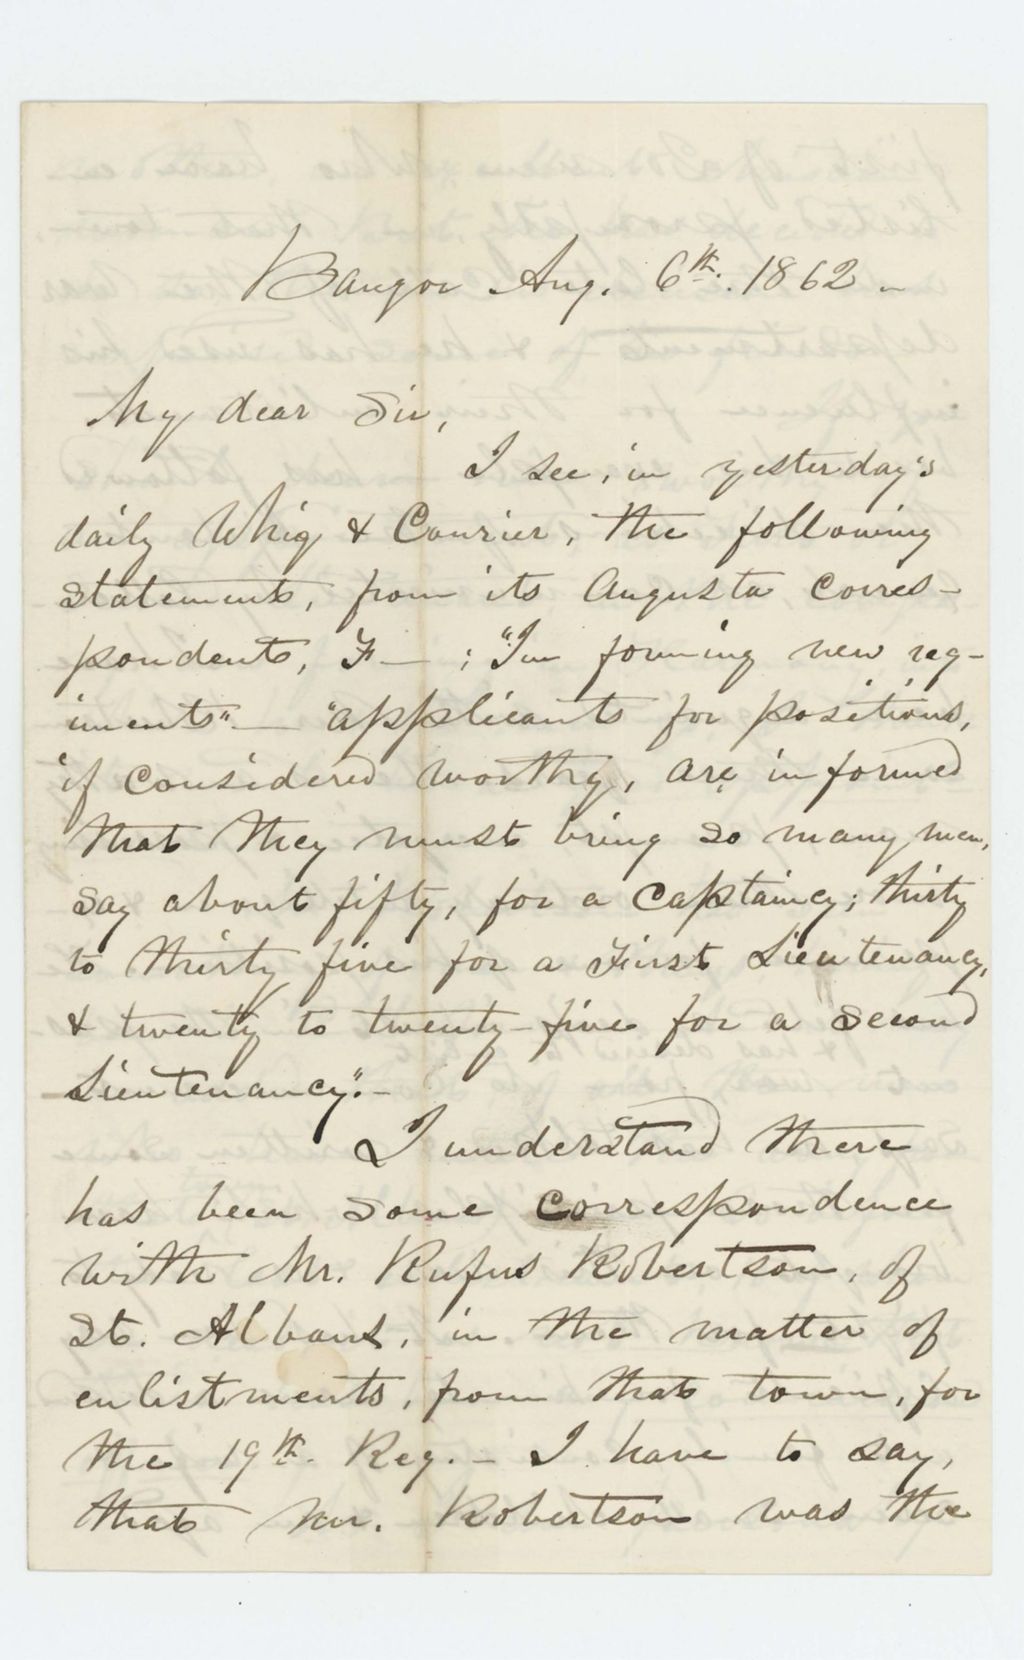 Bangor Aug. 6th. 1862 -
My dear Sir,
I see, in yesterday's
daily Whig & Courier, the following
statements, from its Augusta Corres-
pondents, F— ; "In forming new reg-
iments" — "applicants for positions,
if considered worthy, are informed
that they must bring so many men,
say about fifty, for a Captaincy; thirty
to thirty five for a First Lieutenancy,
& twenty to twenty-five for a Second
Lieutenancy". -
I understand there
has been some correspondence
with Mr. Rufus Robertson, of
St. Albans, in the matter of
enlistments, from that town, for
the 19th. Reg. - I have to say,
that Mr. Robertson was the